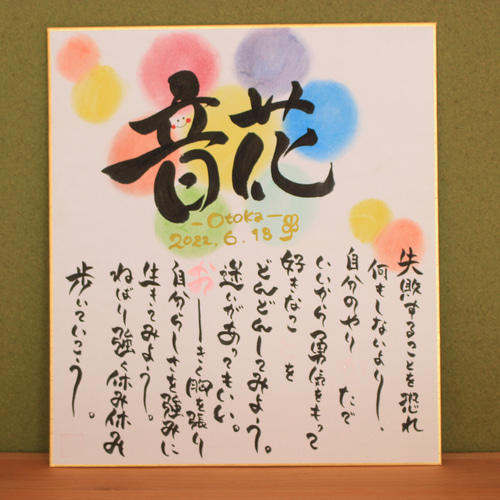 音花
-Otoka-
2022.6.18
失敗することを恐れ
何もしないより、
自分のやり たで
いいから勇気をもって
好きなこ を
どんどんしてみよう。
迷いがあってもいい。
おーきく胸を張り
自分らしさを強みに
生きてみよう。
ねばり強く休み休み
歩いていこう。